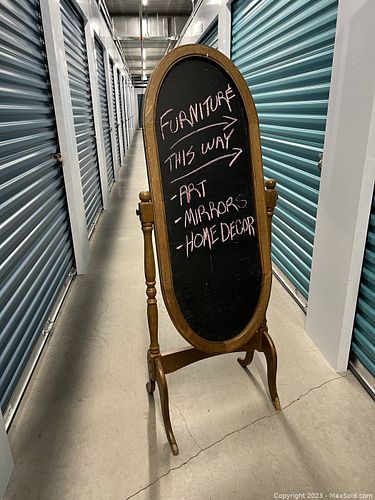 FURNITURE
THIS WAY
- ART
- MIRRORS
- HOME DECOR
Copyright 2023 - MaxSold.com